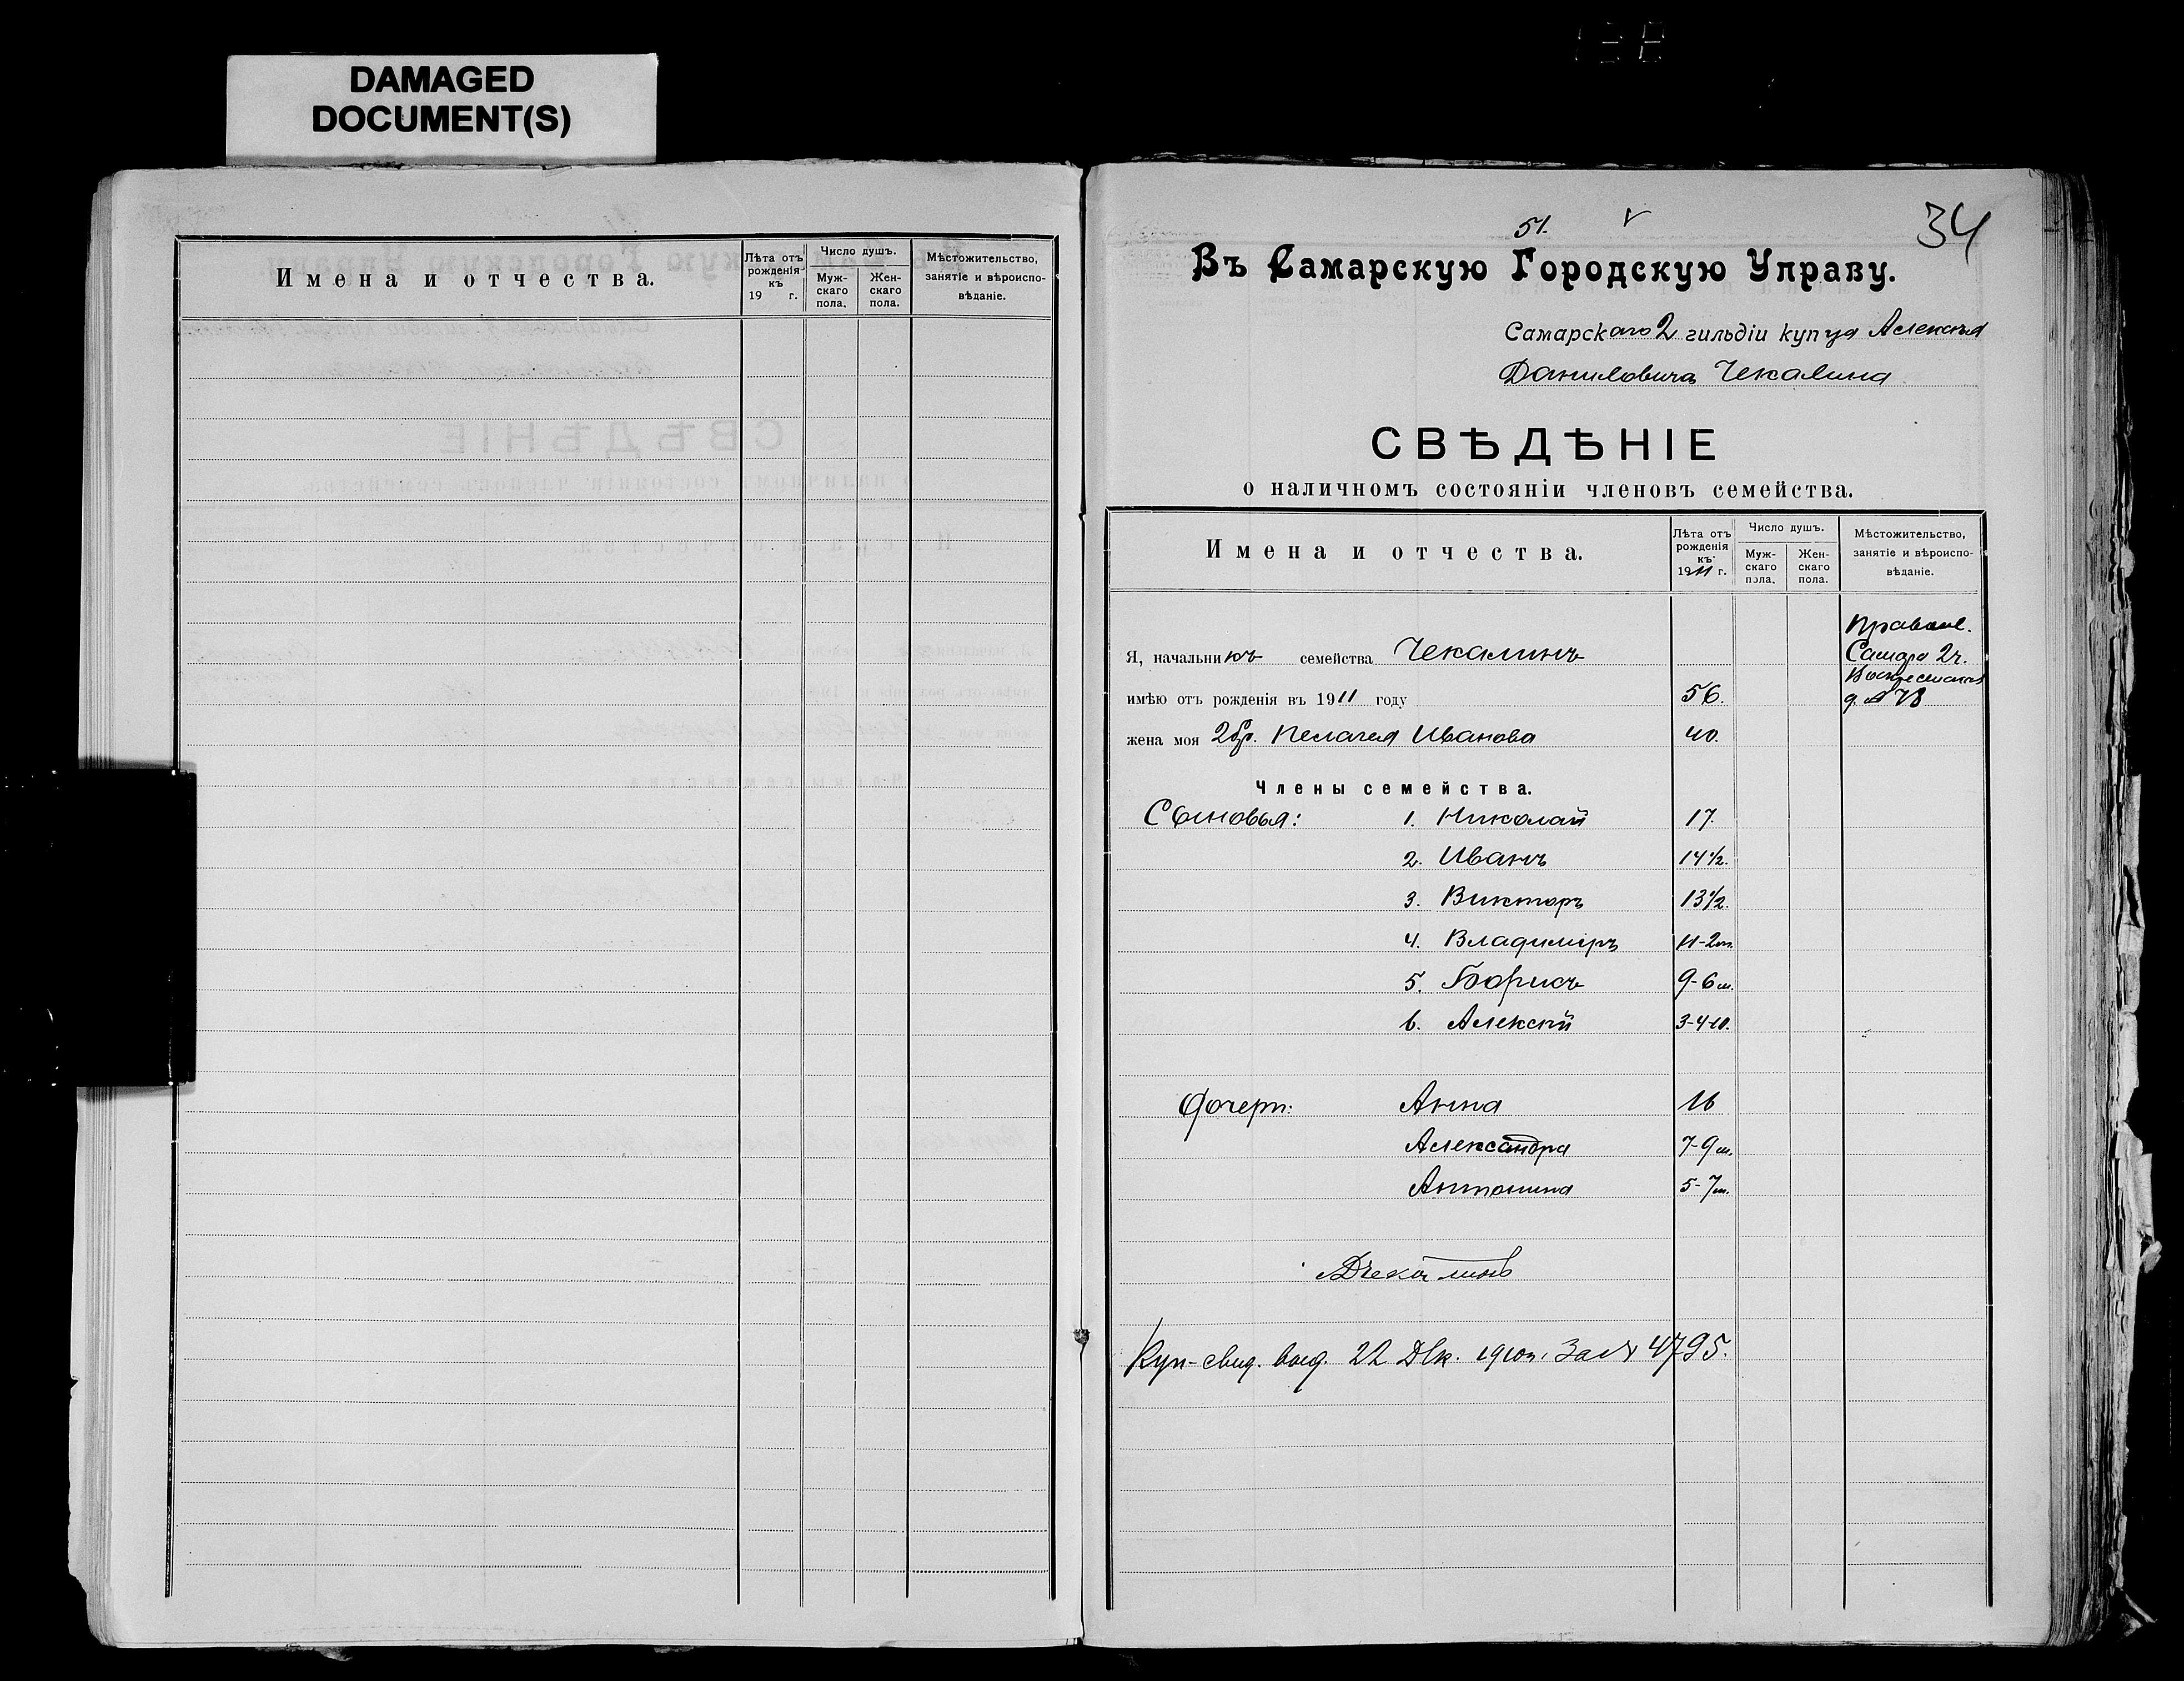 DAMAGED
DOCUMENT(S)
Имена и отчества.
Лѣта отъ
рожденія
къ
19 г.
Число душъ.
Муж-
скаго
пола.
Жен-
скаго
пола.
Мѣстожительство,
занятіе и вѣроиспо-
вѣданіе.
51.
34
Въ Самарскую Городскую Управу.
Самарскаго 2 гильдіи купца Алексѣя
Даниловича Чекалина
СВѢДѢНІЕ
о наличномъ состояніи членовъ семейства.
Имена и отчества.
Лѣта отъ
рожденія
къ
1911 г.
Число душъ.
Муж-
скаго
пола.
Жен-
скаго
пола.
Мѣстожительство,
занятіе и вѣроиспо-
вѣданіе.
Правосл.
Я, начальникъ семейства Чекалинъ
Самара 2 ч.
имѣю отъ рожденія въ 1911 году 56.
жена моя 2 бр. Пелагея Иванова 40.
Члены семейства.
Сыновья: 1. Николай 17.
2. Иванъ 14 1/2.
3. Викторъ 13 1/2.
4. Владиміръ 11-2 м.
5. Борисъ 9-6 м.
6. Алексѣй 3-4-10.
Дочери: Анна 16
Александра 7-9 м.
Антонина 5-7 м.
АДЧекалинъ
Куп-свид. выд. 22 Дек. 1910 г. за № 4795.